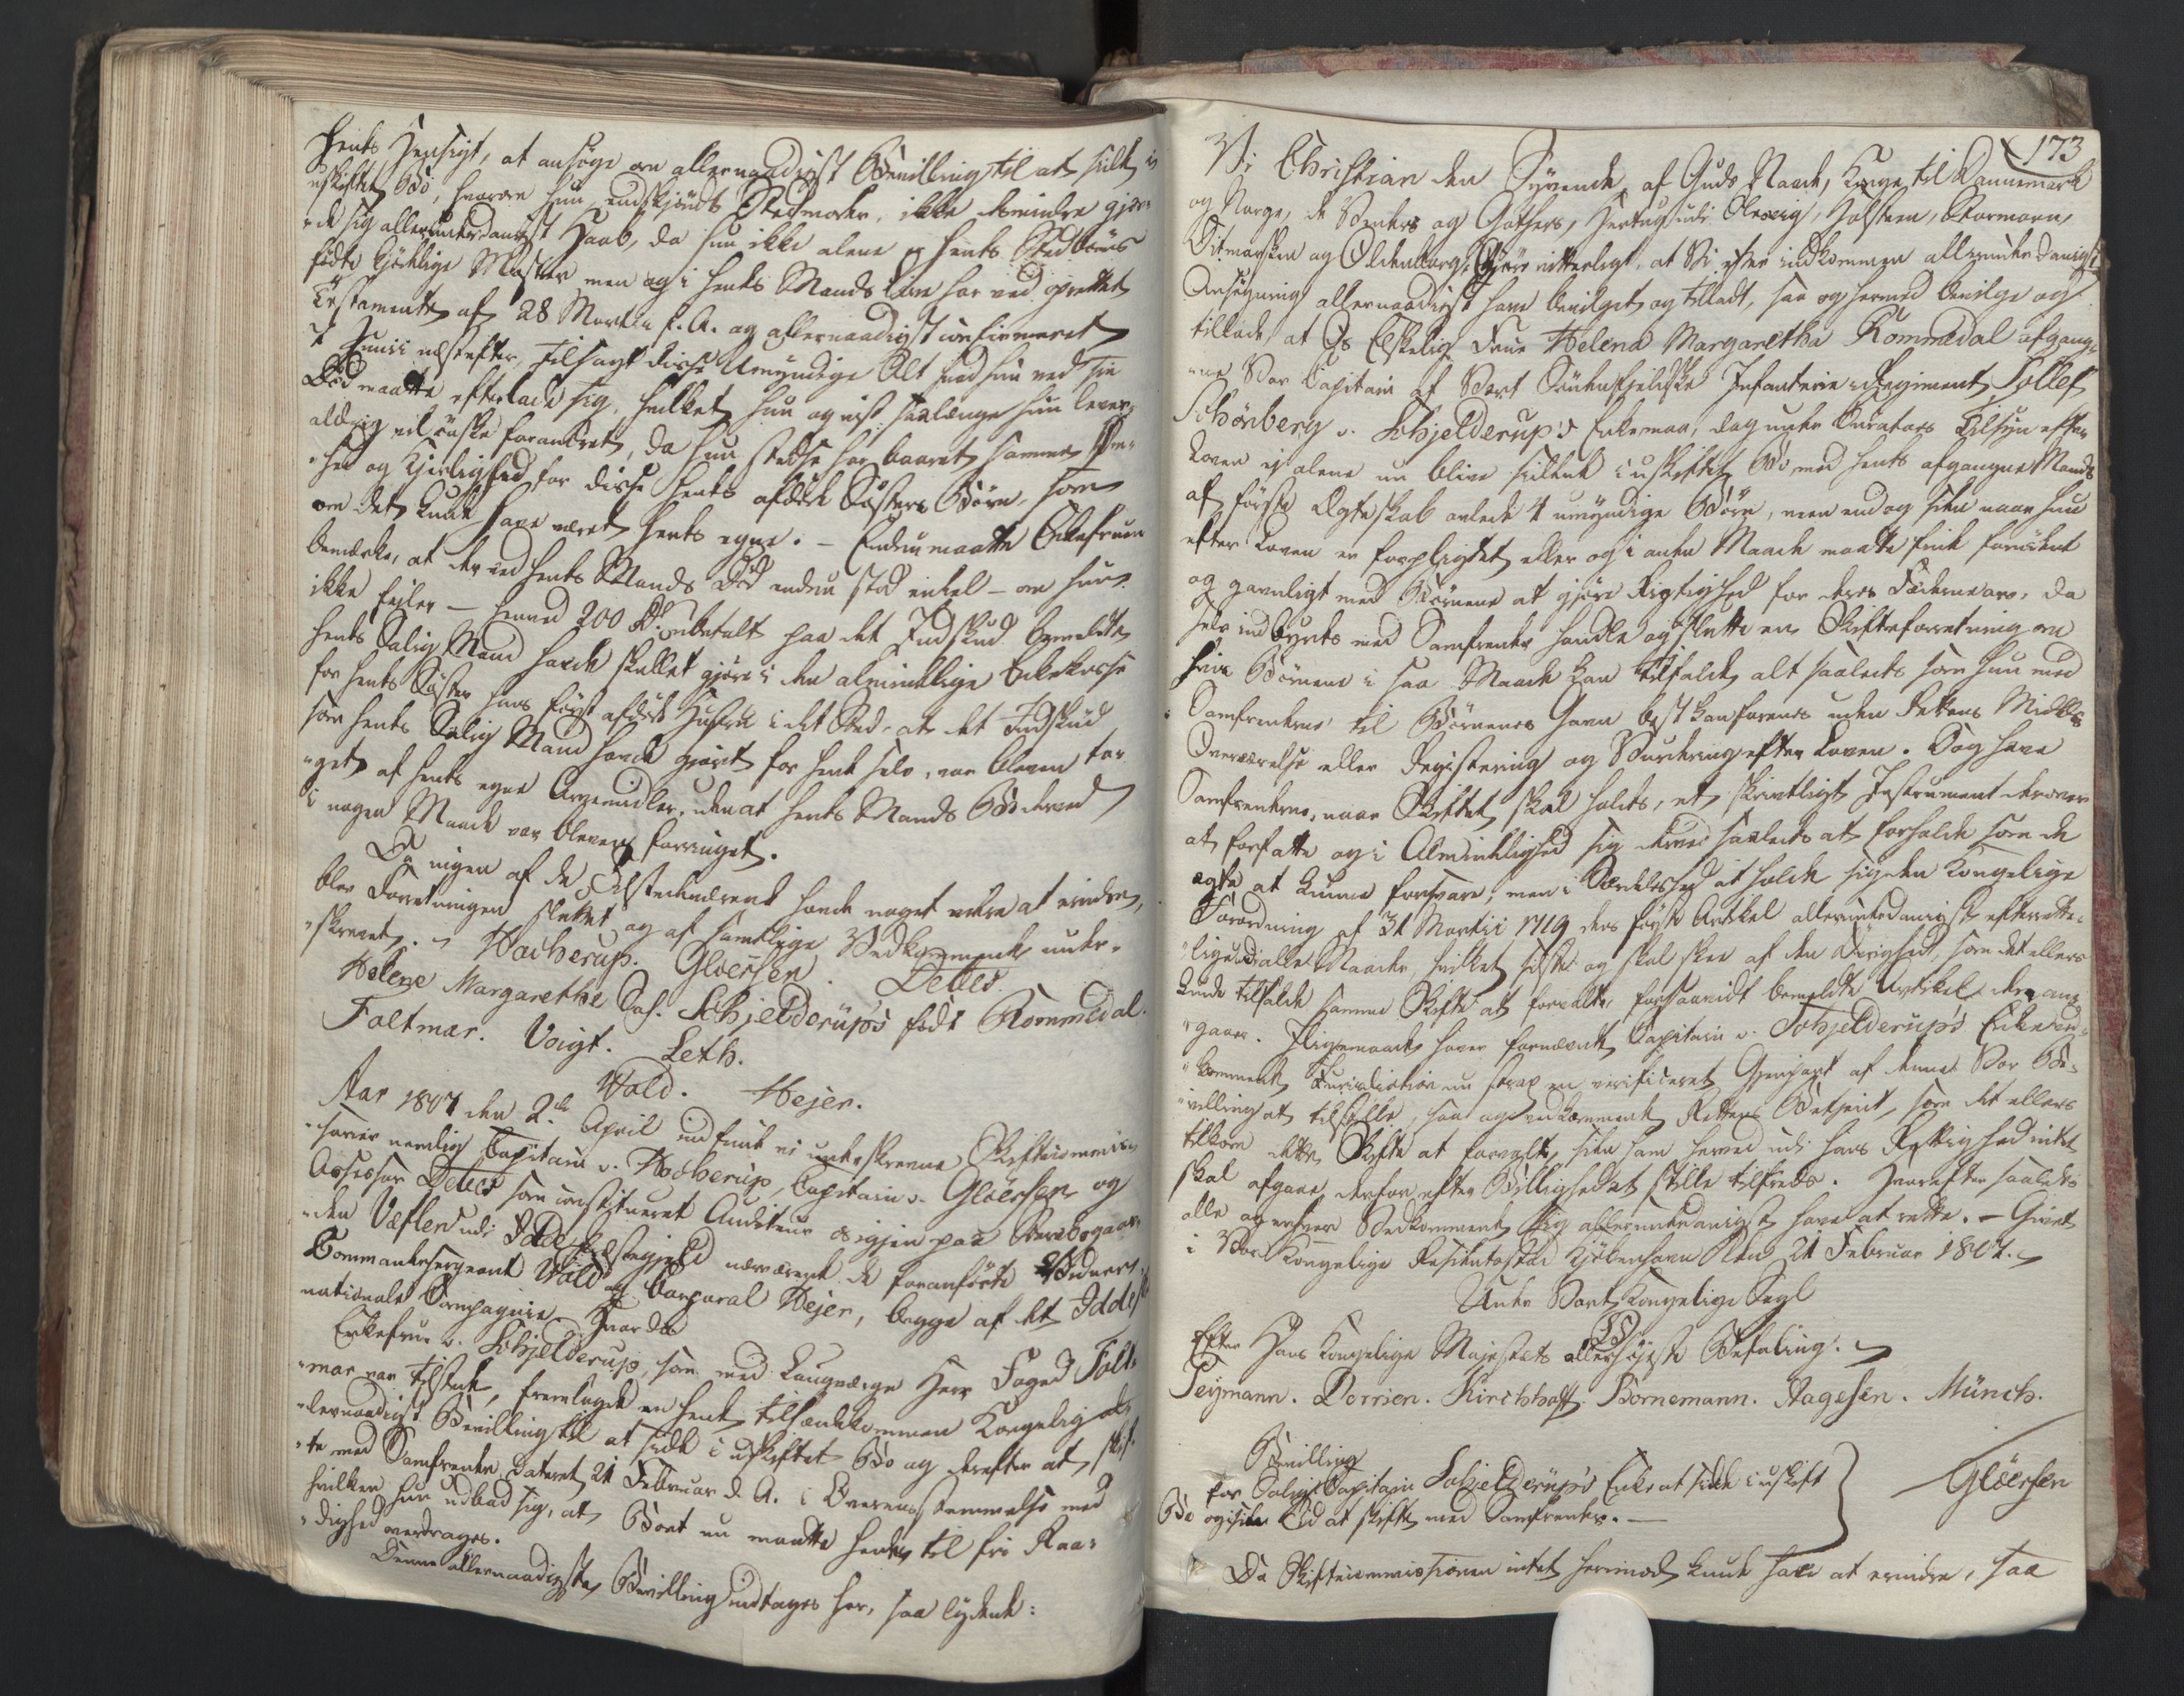 hendes Hensigt, at ansøge om allernaadigst Bevilling til at sidde i
uskiftet Bo, hvorom hun, endskjøndt Stedmoder, ikke desmindre gjør¬
de sig allerunderdanigst Haab, da hun ikke alene er hendes Stedbørns
fødte kjødelige Moster men og i hendes Mands Live har ved oprettet
Testamente af 28 Martii f. A. og allernaadigst confirmeret
Junii næstefter, tilsagt disse Umyndige Alt hvad hun ved sin
Død maatte efterlade sig, hvilket hun og vist saalænge hun lever,
aldrig vil ønske forandret, da hun stedse har baaret samme Øm¬
hed og Kjerlighed for disse hendes afdøde Søsters Børn, som
om det kunde have været hendes egne. – Endnu maatte Enkefruen
bemærke, at der ved hendes Mands Død endnu stod enkel – om hun
ikke feiler – henved 200 Rd. ubetalt paa det Indskud bemeldte
hendes Salig Mand havde skullet gjøre i den almindelige Enkekasse
for hendes Søster hans først afdøde Hustrue i det Sted, at det Indskud
som hendes Salig Mand havde gjort for hende selv, var bleven ta¬
get af hendes egne Arvemidler, uden at hendes Mands Bo derved
i nogen Maade var bleven forringet.
Da ingen af de Tilstedeværende havde noget videre at erindre,
blev Forretningen sluttet og af samtlige Vedkommende under¬
skrevet. Hocherup. Gloërsen. Detles.
Helene Margarethe Sal. Schjelderup's født Rommedal.
Foltmar. Voigt. Leth.
Wold. Hejer.
Aar 1807 den 2de April indfandt vi underskrevne Skiftecommis¬
sairer nemlig Capitain v. Hocherup, Capitain v. Gloërsen og
Assessor Detles som constitueret Auditeur os igjen paa Herregaar¬
den Væflen udi Præstegjeld nærværende de foranførte Vidner
Commandersergeant Wold og Corporal Hejer, begge af det Iddeske
nationale Compagnie. Hvor da
Enkefrue v. Schjelderup, som med Laugværge Herr Foged Folt¬
mar var tilstede, fremlagde en hende tilhændekommen Kongelig al¬
lernaadigst Bevilling til at sidde i uskiftet Bo og derefter at skif¬
te med Samfrender dateret 21 Februar d. A. i Overensstemmelse med
hvilken hun udbad sig, at Boet nu maatte hende til fri Raa¬
dighed overdrages.
Denne allernaadigste Bevilling indtages her, saa lydende:
173
Vi Christian den Syvende, af Guds Naade, Konge til Dannemark
og Norge, de Venders og Gothers, Hertug udi Slesvig, Holsteen, Stormarn,
Ditmarsken og Oldenborg, Gjøre vitterligt, at Vi efter indkommen allerunderdanigst
Ansøgning allernaadigst have bevilget og tilladt, saa og hermed bevilge og
tillade, at Os Elskelig Frue Helena Margaretha Rommedal afgang¬
ne Vor Capitain af Vort Søndenfjeldske Infanterie-Regiment Tollef
Schönberg v. Schjelderup's Enke maa, dog under Curators Tilsyn efter
Loven ej alene nu blive siddende i uskiftet Bo med hendes afgangne Mands
af første Ægteskab avlede 4 umyndige Børn, men endog siden naar hun
efter Loven er forpligtet eller og i anden Maade maatte finde fornødent
og gavnligt med Børnene at gjøre Rigtighed for deres Fædrene arv, da
selv indbyrdes med Samfrender handle og slutte en Skifteforretning om
hvis Børnene i saa Maade kan tilfalde, alt saaledes som hun med
Samfrenderne til Børnenes Gavn best kan forenes uden Rettens Middels
Overværelse eller Registering og Vurdering efter Loven. Dog have
Samfrenderne, naar Skiftet skal holdes, et skriftligt Instrument derover
at forfatte og i Almindelighed sig derved saaledes at forholde som de
agte at kunne forsvare, men i Særdeleshed at holde sig den Kongelige
Forordning af 31 Martii 1719 dens første Artikel allerunderdanigst efterrette¬
lig udi alle Maader, hvilket sidste og skal skee af den Øvrighed, som det ellers
kunde tilfalde samme Skifte at forvalte, forsaavidt bemeldte Artikel dem an¬
gaaer. Iligemaade haver fornævnte Capitain v. Schjelderup's Enke ved¬
kommende Jurisdiction nu strax en verificeret Gjenpart af denne Vor Be¬
villing at tilstille, saa og vedkommende Rettens Betjent, som det ellers
tilkom dette Skifte at forvalte, siden ham herved udi hans Rettighed intet
skal afgaae, derfor efter Billighed at stille tilfreds. Hvorefter saaledes
alle og enhver Vedkommende sig allerunderdanigst have at rette. – Givet
i Vor Kongelige Residentsstad Kjøbenhavn den 21 Februar 1807.
Under Vort Kongelige Segl
LS
Efter Hans Kongelige Majestets allerhøjeste Befaling.
Feymann. Dorrien. Kirchhoff. Bornemann. Aagesen. Münch.
Bevilling
for Salig Capitain Schjelderup's Enke at sidde i uskift
Bo og siden Tid at skifte med Samfrender. –
Gloërsen
Da Skiftecommissionen intet herimod kunde have at erindre, saa